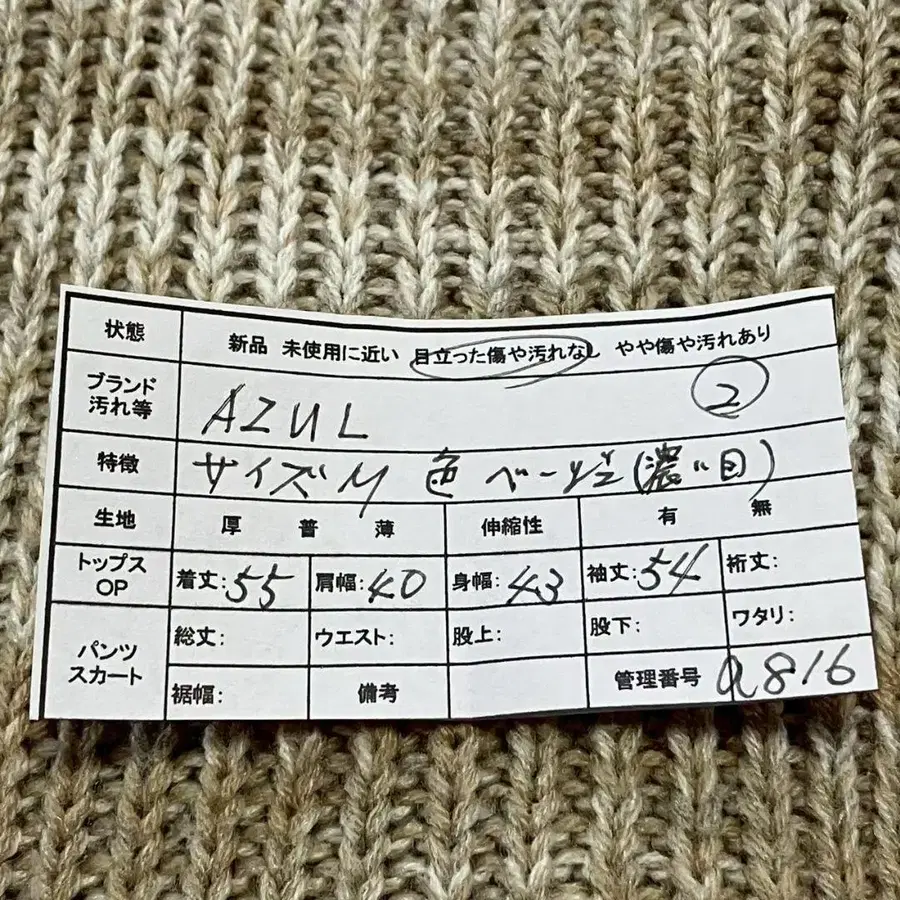 状態 新品 未使用に近い 目立った傷や汚れなし やや傷や汚れあり
ブランド
汚れ等 AZUL ②
特徴 サイズM 色 ベージュ(濃い目)
生地 厚 普 薄 伸縮性 有 無
トップス
OP 着丈:55 肩幅:40 身幅:43 袖丈:54 裄丈:
パンツ
スカート 総丈: ウエスト: 股上: 股下: ワタリ:
裾幅: 備考 管理番号 a816